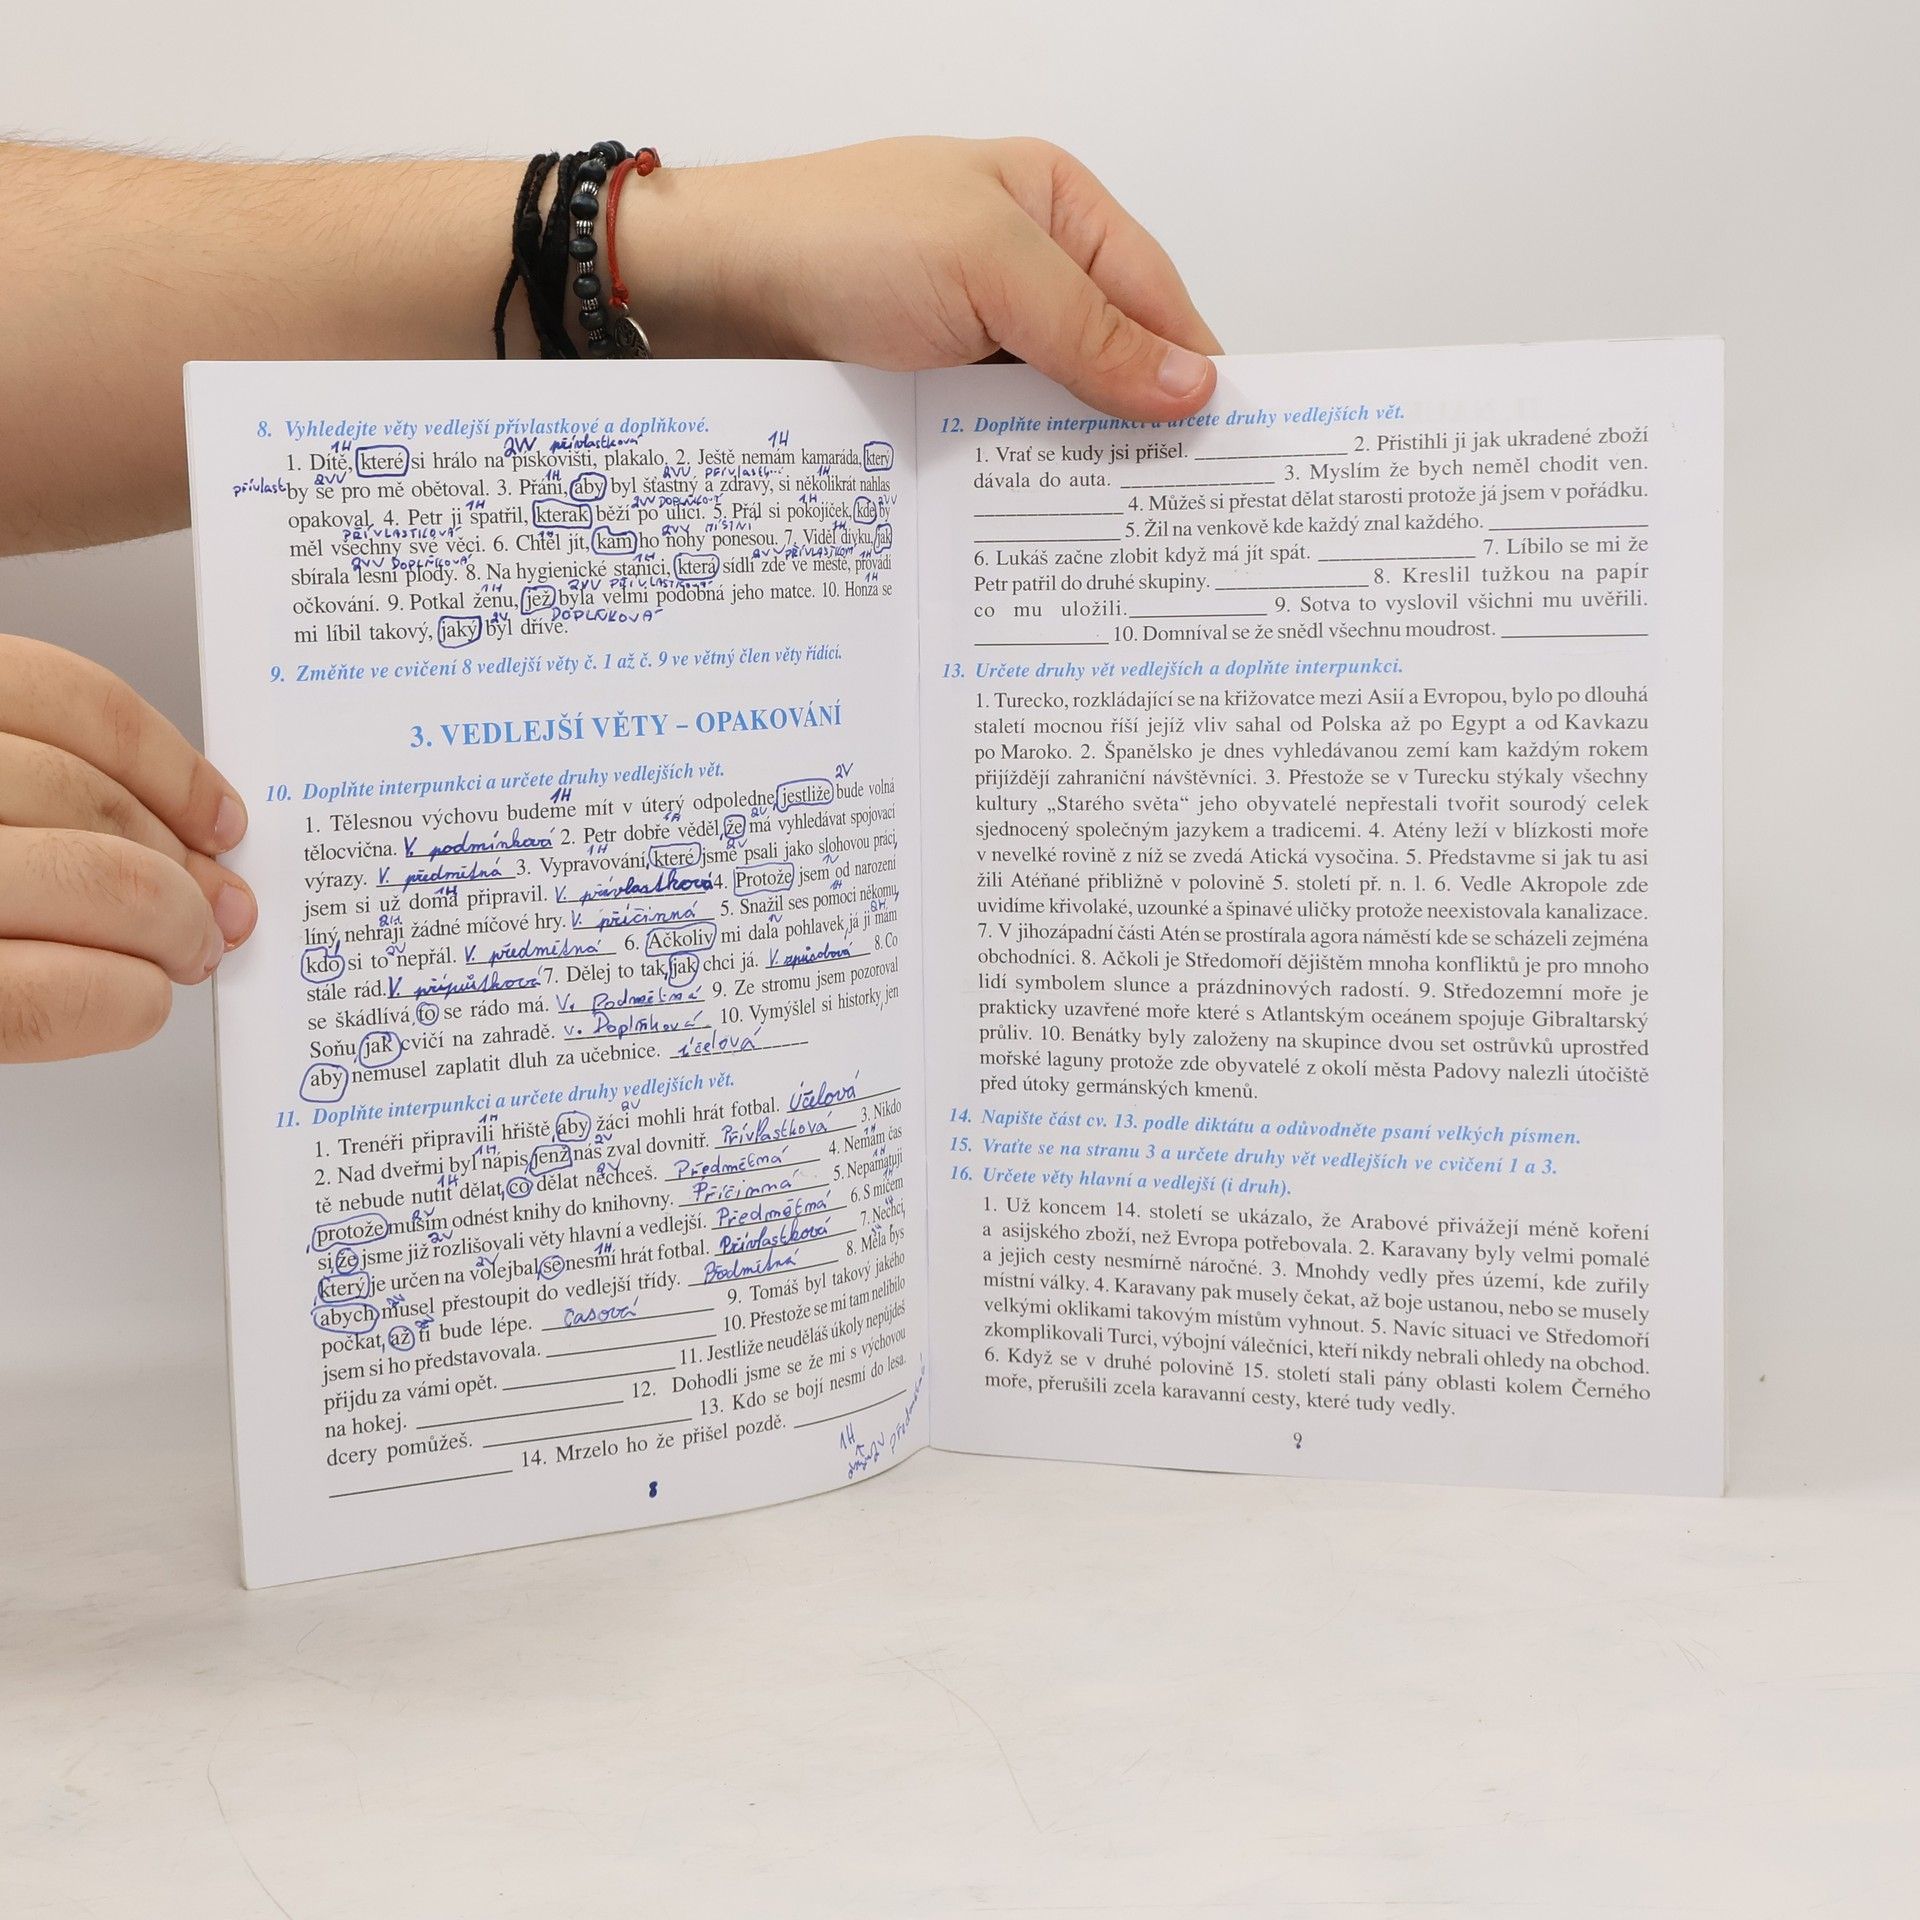 8. Vyhledejte věty vedlejší přívlastkové a doplňkové.
1H 2VV přívlastková 1H
1. Dítě, které si hrálo na pískovišti, plakalo. 2. Ještě nemám kamaráda, který
přívlast. 2VV 1H 2VV přívlast... 1H
by se pro mě obětoval. 3. Přání, aby byl šťastný a zdravý, si několikrát nahlas
1H 2VV DOPLŇKOVÁ 1H 2VV
opakoval. 4. Petr ji spatřil, kterak běží po ulici. 5. Přál si pokojíček, kde by
PŘÍVLASTKOVÁ 1H 2VV MÍSTNÍ 1H
měl všechny své věci. 6. Chtěl jít, kam ho nohy ponesou. 7. Viděl dívku, jak
2VV DOPLŇKOVÁ 1H 2VV PŘÍVLASTKOVÁ 1H
sbírala lesní plody. 8. Na hygienické stanici, která sídlí zde ve městě, provádí
1H 2VV PŘÍVLASTKOVÁ 1H
očkování. 9. Potkal ženu, jež byla velmi podobná jeho matce. 10. Honza se
2V DOPLŇKOVÁ
mi líbil takový, jaký byl dříve.
9. Změňte ve cvičení 8 vedlejší věty č. 1 až č. 9 ve větný člen věty řídící.
3. VEDLEJŠÍ VĚTY – OPAKOVÁNÍ
10. Doplňte interpunkci a určete druhy vedlejších vět.
1H 2V
1. Tělesnou výchovu budeme mít v úterý odpoledne, jestliže bude volná
tělocvična. V. podmínková 2. Petr dobře věděl, že má vyhledávat spojovací
výrazy. V. předmětná 3. Vypravování, které jsme psali jako slohovou práci,
jsem si už doma připravil. V. přívlastková 4. Protože jsem od narození
líný, nehraji žádné míčové hry. V. příčinná 5. Snažil ses pomoci někomu,
kdo si to nepřál. V. předmětná 6. Ačkoliv mi dala pohlavek, já ji mám
stále rád. V. přípustková 7. Dělej to tak, jak chci já. V. způsobová 8. Co
se škádlívá, to se rádo má. V. Podmětná 9. Ze stromu jsem pozoroval
Soňu, jak cvičí na zahradě. V. Doplňková 10. Vymýšlel si historky, jen
aby nemusel zaplatit dluh za učebnice. účelová
11. Doplňte interpunkci a určete druhy vedlejších vět.
1. Trenéři připravili hřiště, aby žáci mohli hrát fotbal. Účelová
2. Nad dveřmi byl nápis, jenž nás zval dovnitř. Přívlastková 3. Nikdo
tě nebude nutit dělat, co dělat nechceš. Předmětná 4. Nemám čas
, protože musím odnést knihy do knihovny. Příčinná 5. Nepamatuji
si, že jsme již rozlišovali věty hlavní a vedlejší. Předmětná 6. S míčem
, který je určen na volejbal, se nesmí hrát fotbal. Přívlastková 7. Nechci,
abych musel přestoupit do vedlejší třídy. Předmětná 8. Měla bys
počkat, až ti bude lépe. časová 9. Tomáš byl takový jakého
jsem si ho představovala. 10. Přestože se mi tam nelíbilo
přijdu za vámi opět. 11. Jestliže neuděláš úkoly nepůjdeš
na hokej. 12. Dohodli jsme se že mi s výchovou
dcery pomůžeš. 13. Kdo se bojí nesmí do lesa.
14. Mrzelo ho že přišel pozdě.
1H
8
12. Doplňte interpunkci a určete druhy vedlejších vět.
1. Vrať se kudy jsi přišel. 2. Přistihli ji jak ukradené zboží
dávala do auta. 3. Myslím že bych neměl chodit ven.
4. Můžeš si přestat dělat starosti protože já jsem v pořádku.
5. Žil na venkově kde každý znal každého.
6. Lukáš začne zlobit když má jít spát. 7. Líbilo se mi že
Petr patřil do druhé skupiny. 8. Kreslil tužkou na papír
co mu uložili. 9. Sotva to vyslovil všichni mu uvěřili.
10. Domníval se že snědl všechnu moudrost.
13. Určete druhy vět vedlejších a doplňte interpunkci.
1. Turecko, rozkládající se na křižovatce mezi Asií a Evropou, bylo po dlouhá
staletí mocnou říší jejíž vliv sahal od Polska až po Egypt a od Kavkazu
po Maroko. 2. Španělsko je dnes vyhledávanou zemí kam každým rokem
přijíždějí zahraniční návštěvníci. 3. Přestože se v Turecku stýkaly všechny
kultury „Starého světa“ jeho obyvatelé nepřestali tvořit sourodý celek
sjednocený společným jazykem a tradicemi. 4. Atény leží v blízkosti moře
v nevelké rovině z níž se zvedá Atická vysočina. 5. Představme si jak tu asi
žili Atéňané přibližně v polovině 5. století př. n. l. 6. Vedle Akropole zde
uvidíme křivolaké, uzounké a špinavé uličky protože neexistovala kanalizace.
7. V jihozápadní části Atén se prostírala agora náměstí kde se scházeli zejména
obchodníci. 8. Ačkoli je Středomoří dějištěm mnoha konfliktů je pro mnoho
lidí symbolem slunce a prázdninových radostí. 9. Středozemní moře je
prakticky uzavřené moře které s Atlantským oceánem spojuje Gibraltarský
průliv. 10. Benátky byly založeny na skupince dvou set ostrůvků uprostřed
mořské laguny protože zde obyvatelé z okolí města Padovy nalezli útočiště
před útoky germánských kmenů.
14. Napište část cv. 13. podle diktátu a odůvodněte psaní velkých písmen.
15. Vraťte se na stranu 3 a určete druhy vět vedlejších ve cvičení 1 a 3.
16. Určete věty hlavní a vedlejší (i druh).
1. Už koncem 14. století se ukázalo, že Arabové přivážejí méně koření
a asijského zboží, než Evropa potřebovala. 2. Karavany byly velmi pomalé
a jejich cesty nesmírně náročné. 3. Mnohdy vedly přes území, kde zuřily
místní války. 4. Karavany pak musely čekat, až boje ustanou, nebo se musely
velkými oklikami takovým místům vyhnout. 5. Navíc situaci ve Středomoří
zkomplikovali Turci, výbojní válečníci, kteří nikdy nebrali ohledy na obchod.
6. Když se v druhé polovině 15. století stali pány oblasti kolem Černého
moře, přerušili zcela karavanní cesty, které tudy vedly.
9